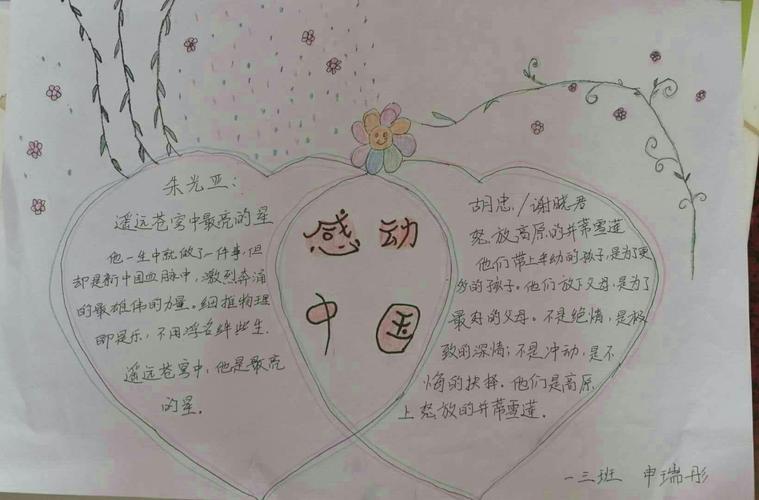 朱光亚：
遥远苍穹中最亮的星
他一生中就做了一件事，但
却是新中国血脉中，激烈奔涌
的最雄伟的力量。细推物理
即是乐，不用浮名绊此生.
遥远苍穹中，他是最亮
的星.
感动
中国
胡忠/谢晓君
怒放高原的并蒂雪莲
他们带上年幼的孩子，是为了更
多的孩子。他们放下父母，是为了
最好的父母。不是绝情，是极
致的深情；不是冲动，是不
悔的抉择。他们是高原
上怒放的并蒂雪莲.
一三班 申瑞彤